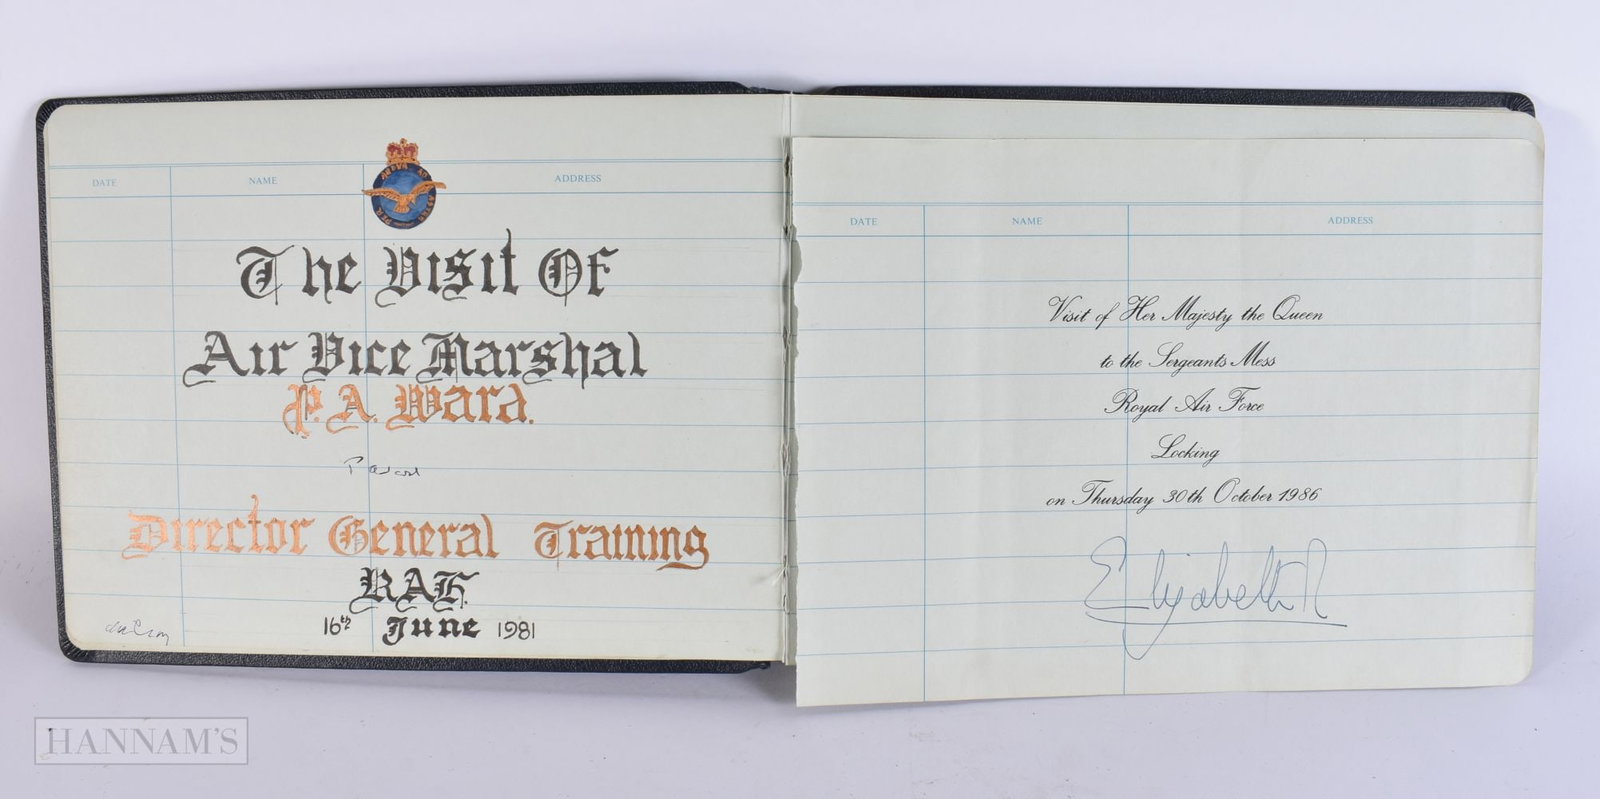 DATE NAME ADDRESS
The Visit Of
Air Vice Marshal
P. A. Ward.
Director General Training
RAF.
16th June 1981
DATE NAME ADDRESS
Visit of Her Majesty the Queen
to the Sergeants Mess
Royal Air Force
Locking
on Thursday 30th October 1986
Elizabeth R
HANNAM'S